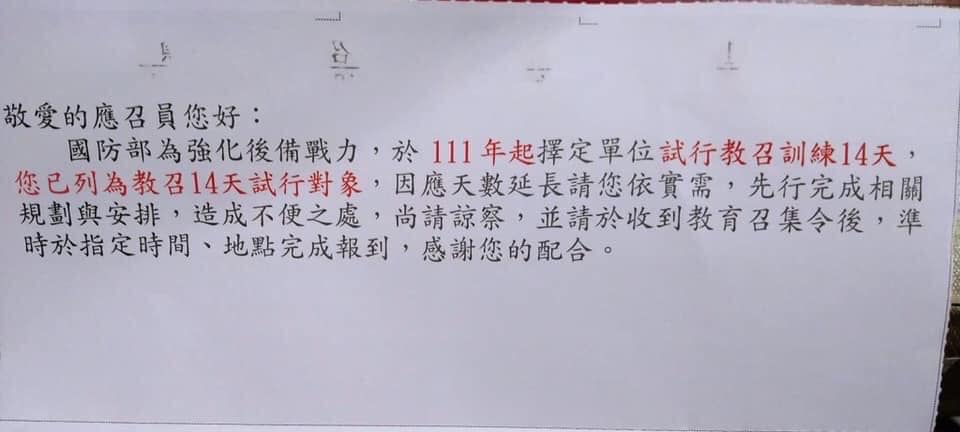 敬愛的應召員您好：
國防部為強化後備戰力，於 111年起擇定單位試行教召訓練14天，
您已列為教召14天試行對象，因應天數延長請您依實需，先行完成相關
規劃與安排，造成不便之處，尚請諒察，並請於收到教育召集令後，準
時於指定時間、地點完成報到，感謝您的配合。